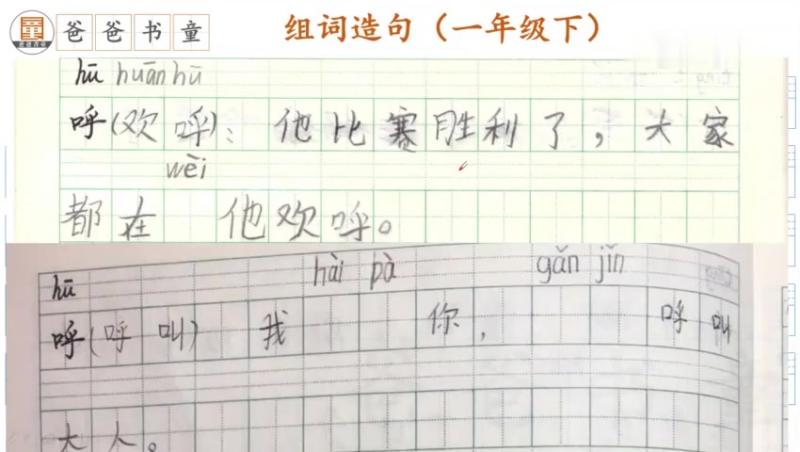 童 爸爸书童
组词造句（一年级下）
hū huān hū
呼(欢呼)：他比赛胜利了，大家
wèi
都在 他欢呼。
hū hài pà gǎn jǐn
呼(呼叫) 我 你， 呼叫
大人。